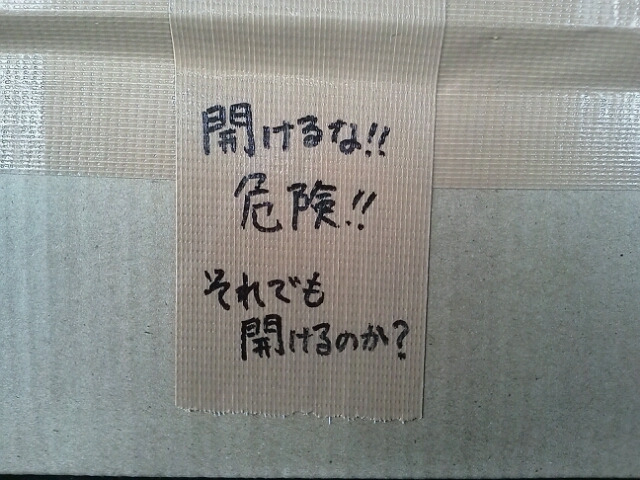 開けるな!!
危険!!
それでも
開けるのか?